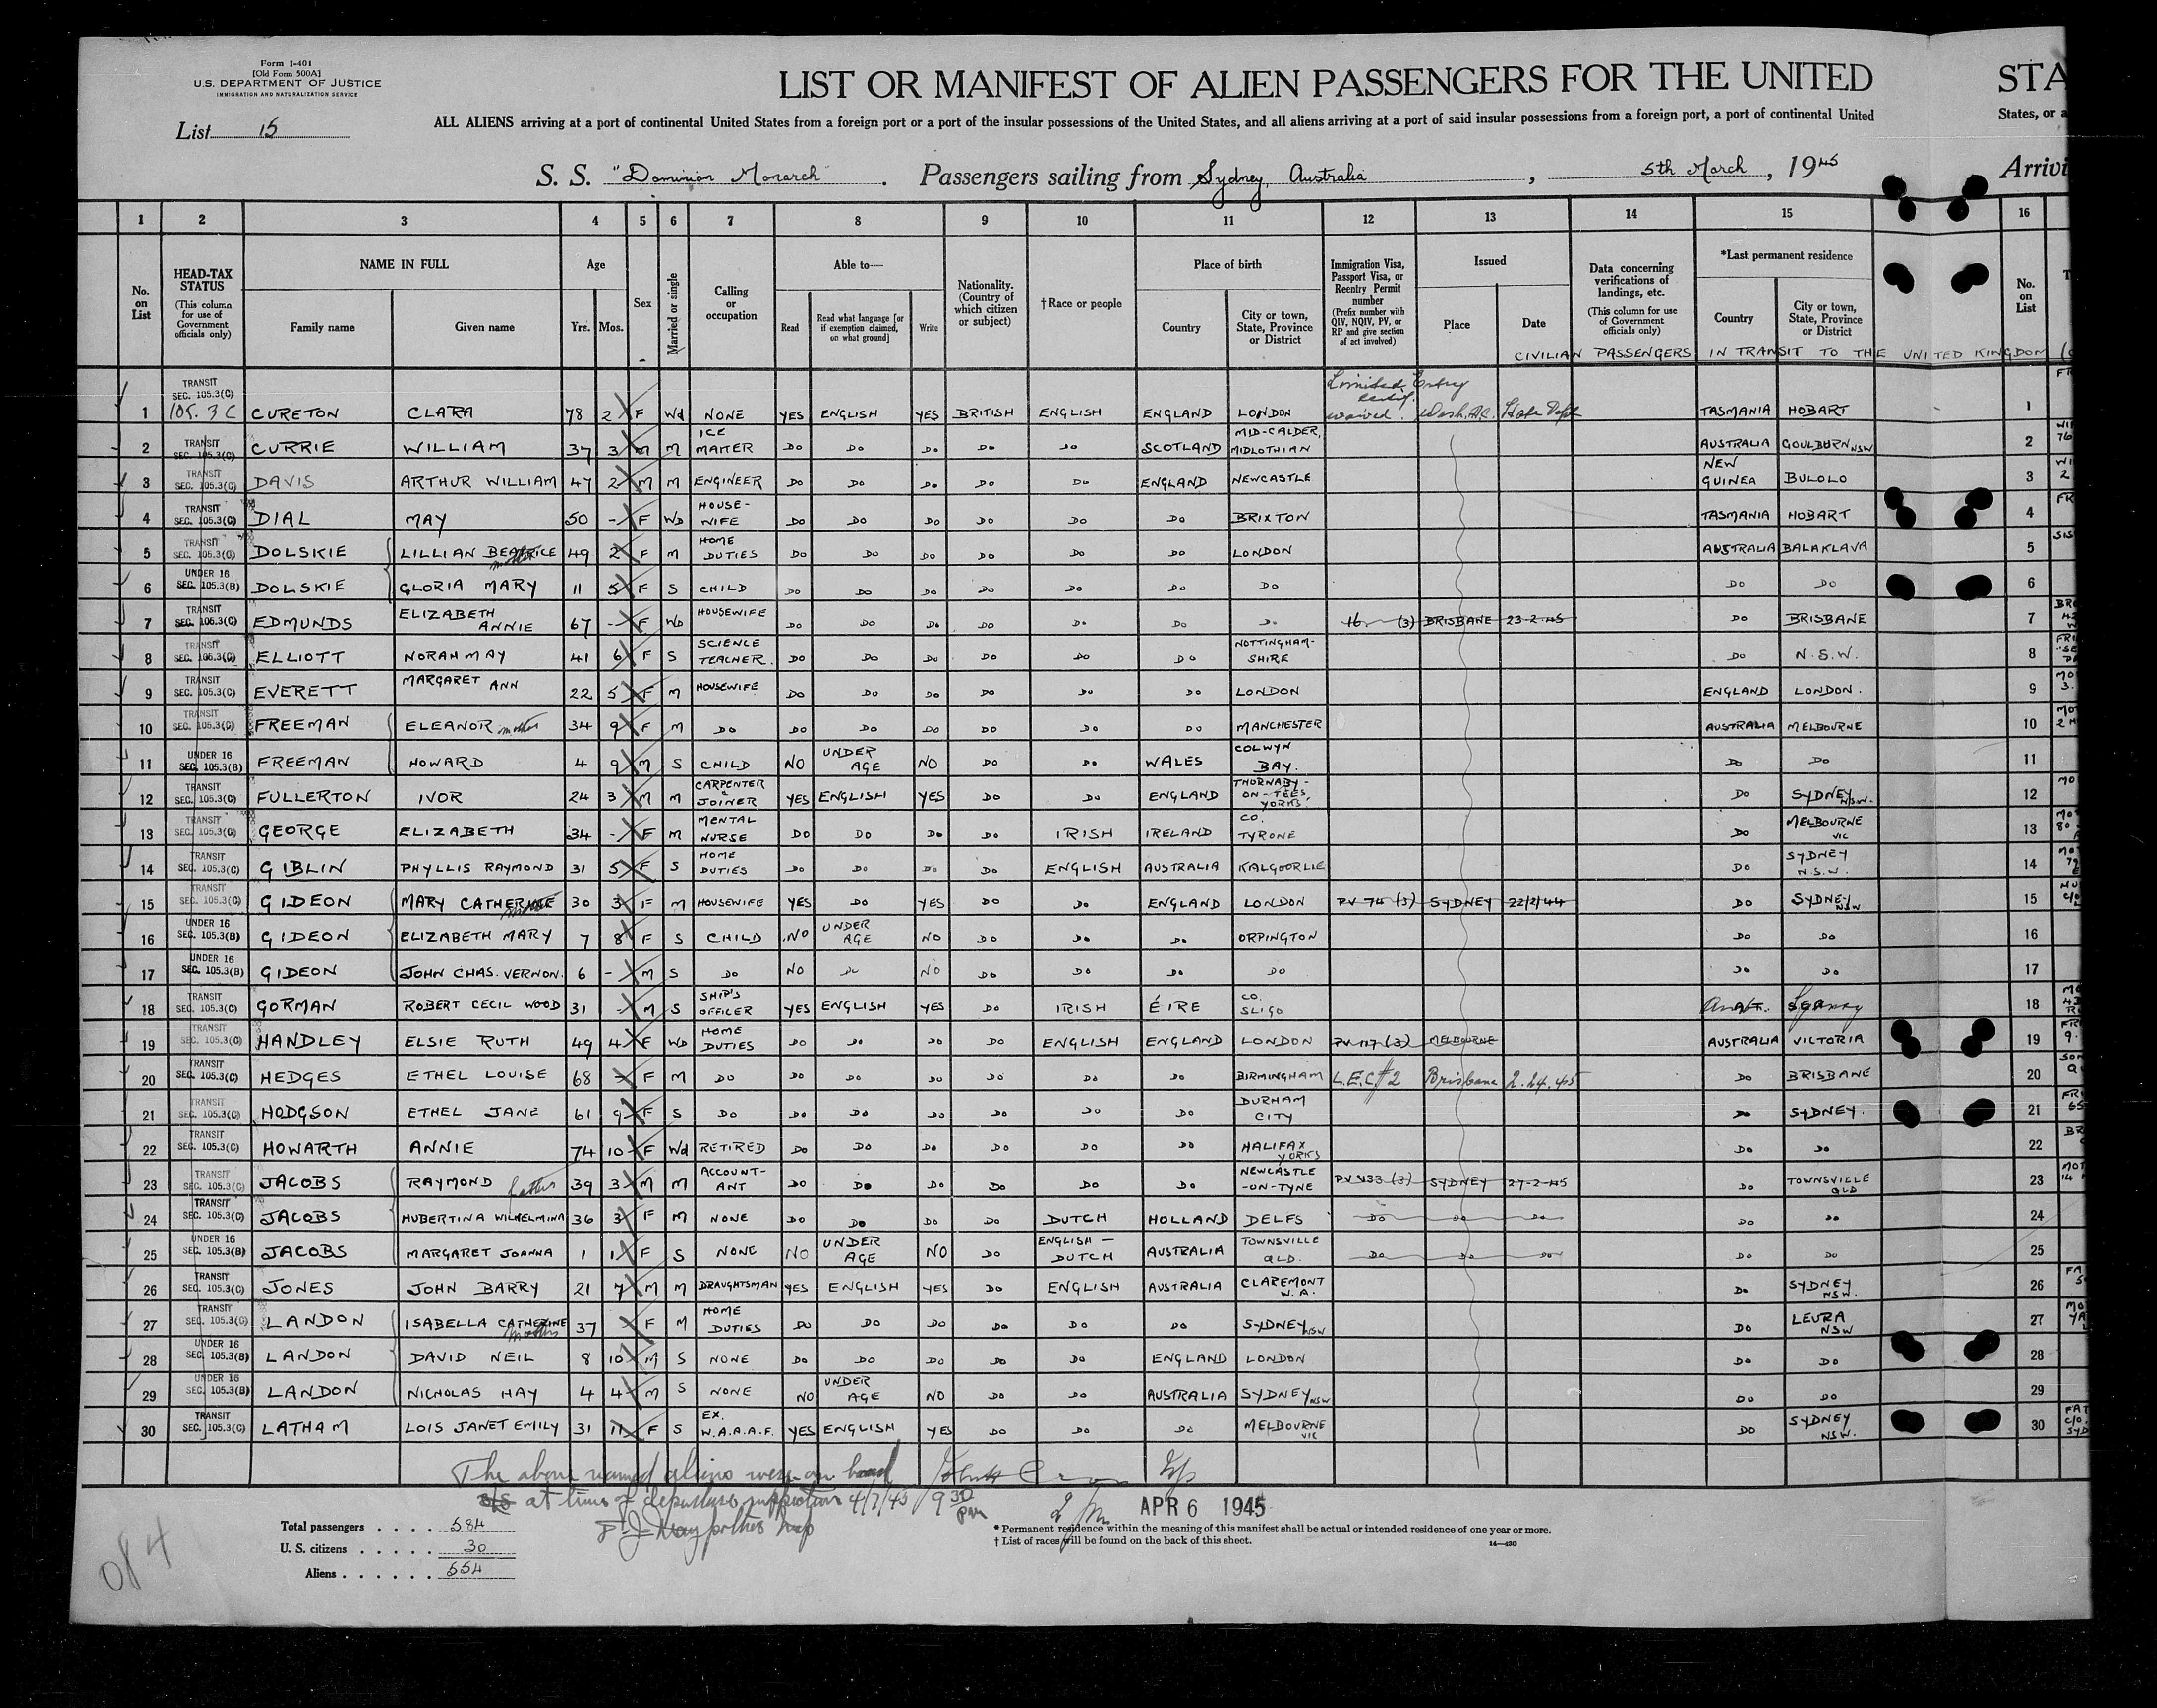 Form I-401
[Old Form 500A]
U.S. DEPARTMENT OF JUSTICE
IMMIGRATION AND NATURALIZATION SERVICE
List 15
LIST OR MANIFEST OF ALIEN PASSENGERS FOR THE UNITED STA
ALL ALIENS arriving at a port of continental United States from a foreign port or a port of the insular possessions of the United States, and all aliens arriving at a port of said insular possessions from a foreign port, a port of continental United States, or a
S. S. "Dominion Monarch" . Passengers sailing from Sydney, Australia , 5th March , 1945 Arrivi
1 2 3 4 5 6 7 8 9 10 11 12 13 14 15 16
No. on List
HEAD-TAX STATUS (This column for use of Government officials only)
NAME IN FULL Family name Given name
Age Yrs. Mos.
Sex
Married or single
Calling or occupation
Able to— Read Read what language [or if exemption claimed, on what ground] Write
Nationality. (Country of which citizen or subject)
†Race or people
Place of birth Country City or town, State, Province or District
Immigration Visa, Passport Visa, or Reentry Permit number (Prefix number with QIV, NQIV, PV, or RP and give section of act involved)
Issued Place Date
Data concerning verifications of landings, etc. (This column for use of Government officials only)
*Last permanent residence Country City or town, State, Province or District
No. on List
CIVILIAN PASSENGERS IN TRANSIT TO THE UNITED KINGDOM
1 TRANSIT SEC. 105.3(C) 105. 3 C CURETON CLARA 78 2 F Wd NONE YES ENGLISH YES BRITISH ENGLISH ENGLAND LONDON Limited Entry Certif. waived. Wash. D.C. State Dept TASMANIA HOBART 1
2 TRANSIT SEC. 105.3(C) CURRIE WILLIAM 37 3 M M ICE MAKER DO DO DO DO DO SCOTLAND MID-CALDER, MIDLOTHIAN AUSTRALIA GOULBURN NSW 2
3 TRANSIT SEC. 105.3(C) DAVIS ARTHUR WILLIAM 47 2 M M ENGINEER DO DO DO DO DO ENGLAND NEWCASTLE NEW GUINEA BULOLO 3
4 TRANSIT SEC. 105.3(C) DIAL MAY 50 - F WD HOUSE-WIFE DO DO DO DO DO DO BRIXTON TASMANIA HOBART 4
5 TRANSIT SEC. 105.3(C) DOLSKIE LILLIAN BEATRICE mother 49 2 F M HOME DUTIES DO DO DO DO DO DO LONDON AUSTRALIA BALAKLAVA 5
6 UNDER 16 SEC. 105.3(B) DOLSKIE GLORIA MARY 11 5 F S CHILD DO DO DO DO DO DO DO DO DO 6
7 TRANSIT SEC. 105.3(C) EDMUNDS ELIZABETH ANNIE 67 - F WD HOUSEWIFE DO DO DO DO DO DO DO 16 (3) BRISBANE 23-2-45 DO BRISBANE 7
8 TRANSIT SEC. 105.3(C) ELLIOTT NORAH MAY 41 6 F S SCIENCE TEACHER. DO DO DO DO DO DO NOTTINGHAM-SHIRE DO N.S.W. 8
9 TRANSIT SEC. 105.3(C) EVERETT MARGARET ANN 22 5 F M HOUSEWIFE DO DO DO DO DO DO LONDON ENGLAND LONDON. 9
10 TRANSIT SEC. 105.3(C) FREEMAN ELEANOR mother 34 9 F M DO DO DO DO DO DO DO MANCHESTER AUSTRALIA MELBOURNE 10
11 UNDER 16 SEC. 105.3(B) FREEMAN HOWARD 4 9 M S CHILD NO UNDER AGE NO DO DO WALES COLWYN BAY. DO DO 11
12 TRANSIT SEC. 105.3(C) FULLERTON IVOR 24 3 M M CARPENTER & JOINER YES ENGLISH YES DO DO ENGLAND THORNABY-ON-TEES, YORKS. DO SYDNEY N.S.W. 12
13 TRANSIT SEC. 105.3(C) GEORGE ELIZABETH 34 - F M MENTAL NURSE DO DO DO DO IRISH IRELAND CO. TYRONE DO MELBOURNE VIC 13
14 TRANSIT SEC. 105.3(C) GIBLIN PHYLLIS RAYMOND 31 5 F S HOME DUTIES DO DO DO DO ENGLISH AUSTRALIA KALGOORLIE DO SYDNEY N.S.W. 14
15 TRANSIT SEC. 105.3(C) GIDEON MARY CATHERINE mother 30 3 F M HOUSEWIFE YES DO YES DO DO ENGLAND LONDON PV 74 (3) SYDNEY 22/2/44 DO SYDNEY NSW 15
16 UNDER 16 SEC. 105.3(B) GIDEON ELIZABETH MARY 7 8 F S CHILD NO UNDER AGE NO DO DO DO ORPINGTON DO DO 16
17 UNDER 16 SEC. 105.3(B) GIDEON JOHN CHAS. VERNON. 6 - M S DO NO DO NO DO DO DO DO DO DO 17
18 TRANSIT SEC. 105.3(C) GORMAN ROBERT CECIL WOOD 31 - M S SHIP'S OFFICER YES ENGLISH YES DO IRISH ÉIRE CO. SLIGO 18
19 TRANSIT SEC. 105.3(C) HANDLEY ELSIE RUTH 49 4 F WD HOME DUTIES DO DO DO DO ENGLISH ENGLAND LONDON PV 117 (3) MELBOURNE AUSTRALIA VICTORIA 19
20 TRANSIT SEC. 105.3(C) HEDGES ETHEL LOUISE 68 - F M DO DO DO DO DO DO DO BIRMINGHAM L.E.C.#2 Brisbane 2.24.45 DO BRISBANE 20
21 TRANSIT SEC. 105.3(C) HODGSON ETHEL JANE 61 9 F S DO DO DO DO DO DO DO DURHAM CITY DO SYDNEY. 21
22 TRANSIT SEC. 105.3(C) HOWARTH ANNIE 74 10 F Wd RETIRED DO DO DO DO DO DO HALIFAX YORKS DO DO 22
23 TRANSIT SEC. 105.3(C) JACOBS RAYMOND father 39 3 M M ACCOUNT-ANT DO DO DO DO DO DO NEWCASTLE-ON-TYNE PV 433 (3) SYDNEY 27-2-45 DO TOWNSVILLE QLD 23
24 TRANSIT SEC. 105.3(C) JACOBS HUBERTINA WILHELMINA 36 3 F M NONE DO DO DO DO DUTCH HOLLAND DELFS DO DO DO DO DO 24
25 UNDER 16 SEC. 105.3(B) JACOBS MARGARET JOANNA 1 1 F S NONE NO UNDER AGE NO DO ENGLISH-DUTCH AUSTRALIA TOWNSVILLE QLD. DO DO DO DO DO 25
26 TRANSIT SEC. 105.3(C) JONES JOHN BARRY 21 7 M M DRAUGHTSMAN YES ENGLISH YES DO ENGLISH AUSTRALIA CLAREMONT W.A. DO SYDNEY NSW. 26
27 TRANSIT SEC. 105.3(C) LANDON ISABELLA CATHERINE mother 37 F M HOME DUTIES DO DO DO DO DO DO SYDNEY NSW DO LEURA NSW 27
28 UNDER 16 SEC. 105.3(B) LANDON DAVID NEIL 8 10 M S NONE DO DO DO DO DO ENGLAND LONDON DO DO 28
29 UNDER 16 SEC. 105.3(B) LANDON NICHOLAS HAY 4 4 M S NONE NO UNDER AGE NO DO DO AUSTRALIA SYDNEY NSW DO DO 29
30 TRANSIT SEC. 105.3(C) LATHAM LOIS JANET EMILY 31 11 F S EX. W.A.A.A.F. YES ENGLISH YES DO DO DO MELBOURNE VIC DO SYDNEY NSW. 30
The above named aliens were on board
at time of departure inspection 4/7/45 9 30 pm
APR 6 1945
Total passengers . . . . 584
U. S. citizens . . . . . 30
Aliens . . . . . . 554
* Permanent residence within the meaning of this manifest shall be actual or intended residence of one year or more.
† List of races will be found on the back of this sheet.
14—430
084